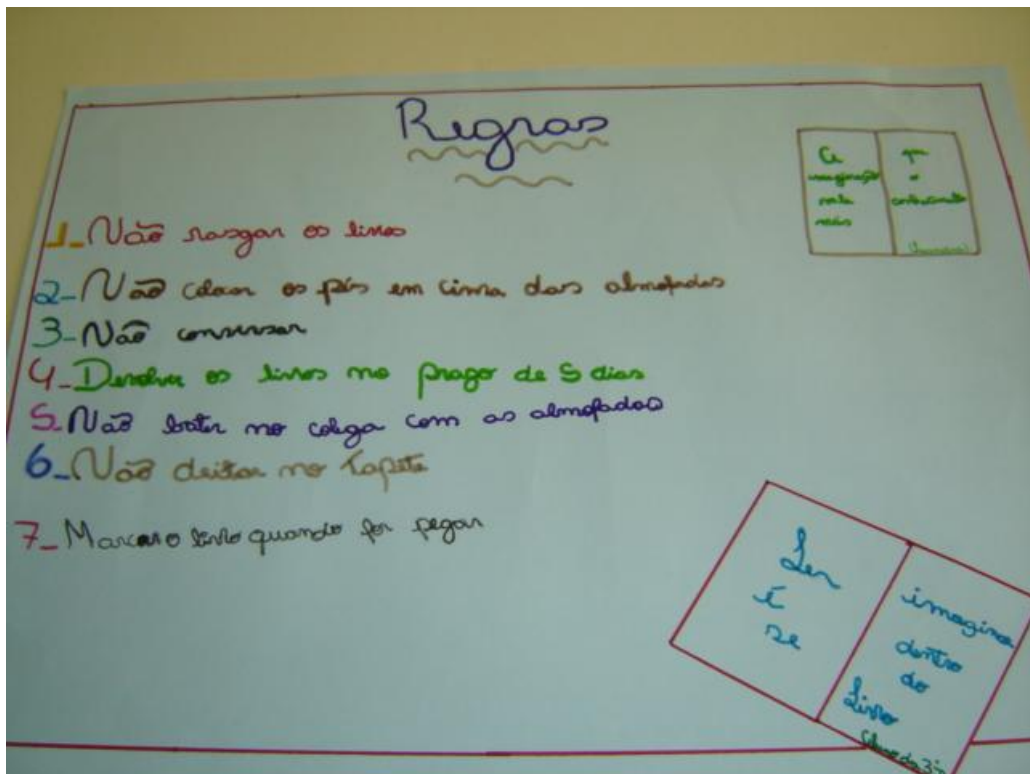 Regras
A
imaginação
vale
mais
que
o
conhecimento
1_ Não rasgar os livros
2- Não colocar os pés em cima das almofadas
3- Não conversar
4- Devolver os livros no prazo de 5 dias
5_ Não bater no colega com as almofadas
6_ Não deitar no tapete
7_ Marcar o livro quando for pegar
Ler
é
se
imaginar
dentro
do
Livro